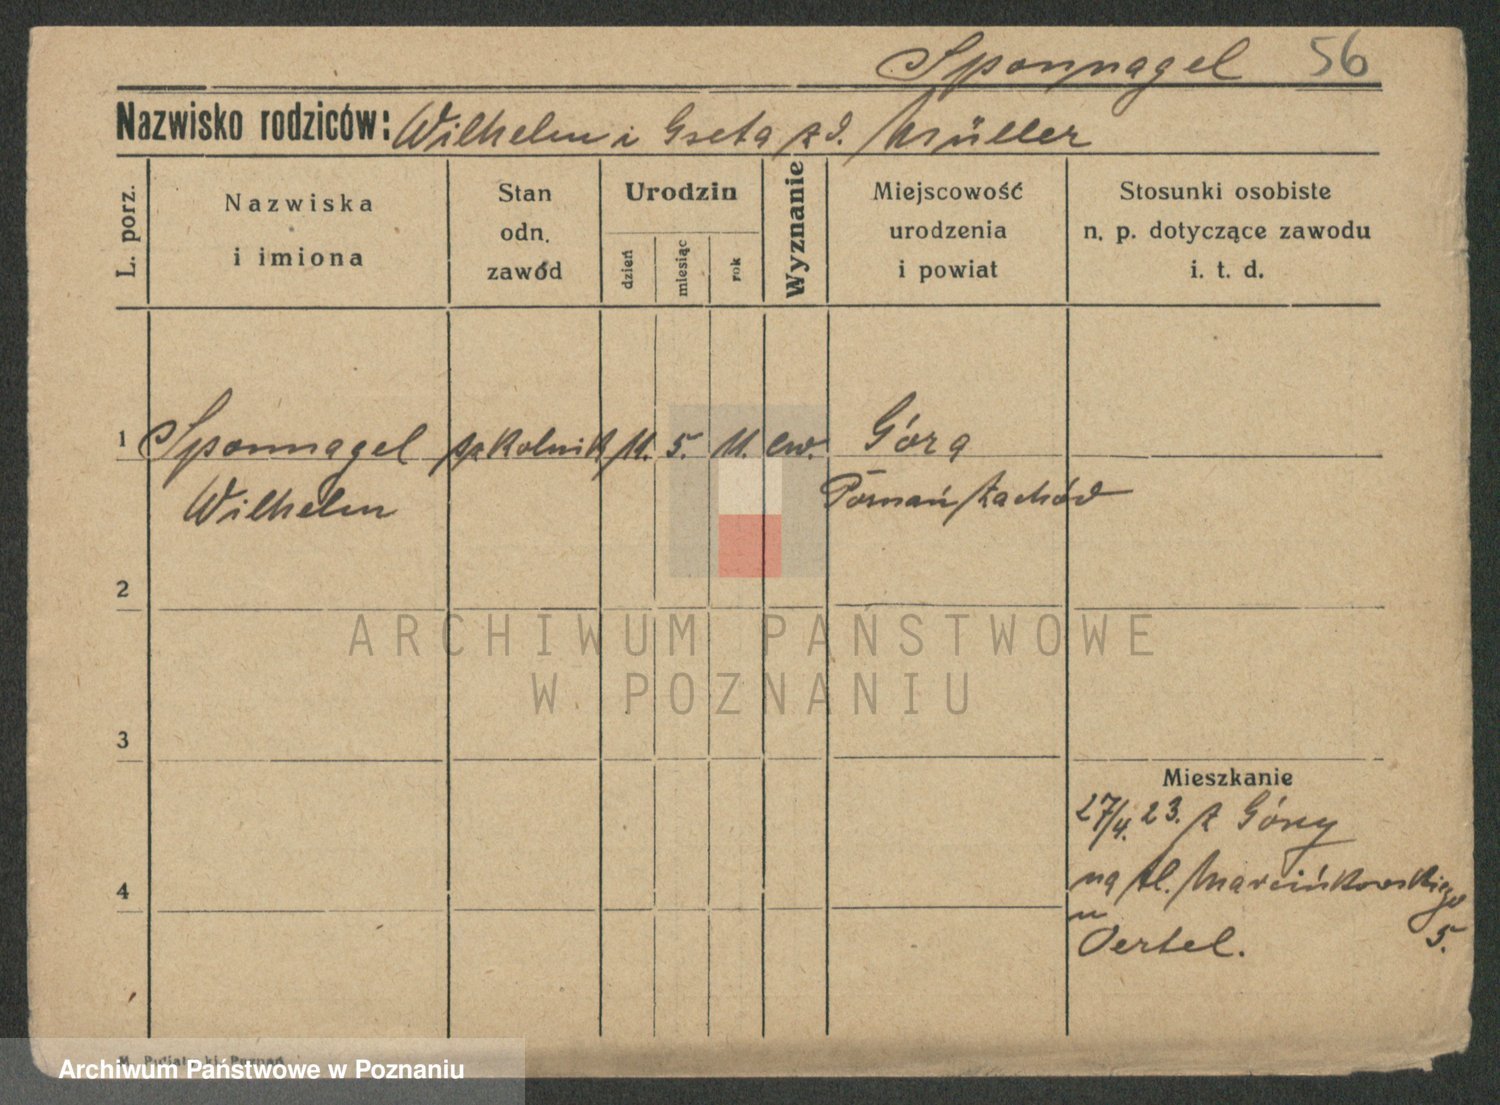 Sponnagel 56
Nazwisko rodziców: Wilhelm i Greta zd. Müller
L. porz.
Nazwiska
i imiona
Stan
odn.
zawód
Urodzin
dzień
miesiąc
rok
Wyznanie
Miejscowość
urodzenia
i powiat
Stosunki osobiste
n. p. dotyczące zawodu
i. t. d.
1 Sponnagel szkolnik 11. 5. 11. ew. Góra
Wilhelm Poznań Zachód
2
ARCHIWUM PAŃSTWOWE
W POZNANIU
3
Mieszkanie
27/4. 23. z Góry
4 na Al. Marcinkowskiego
u 5.
Oertel.
Poznań
Archiwum Państwowe w Poznaniu